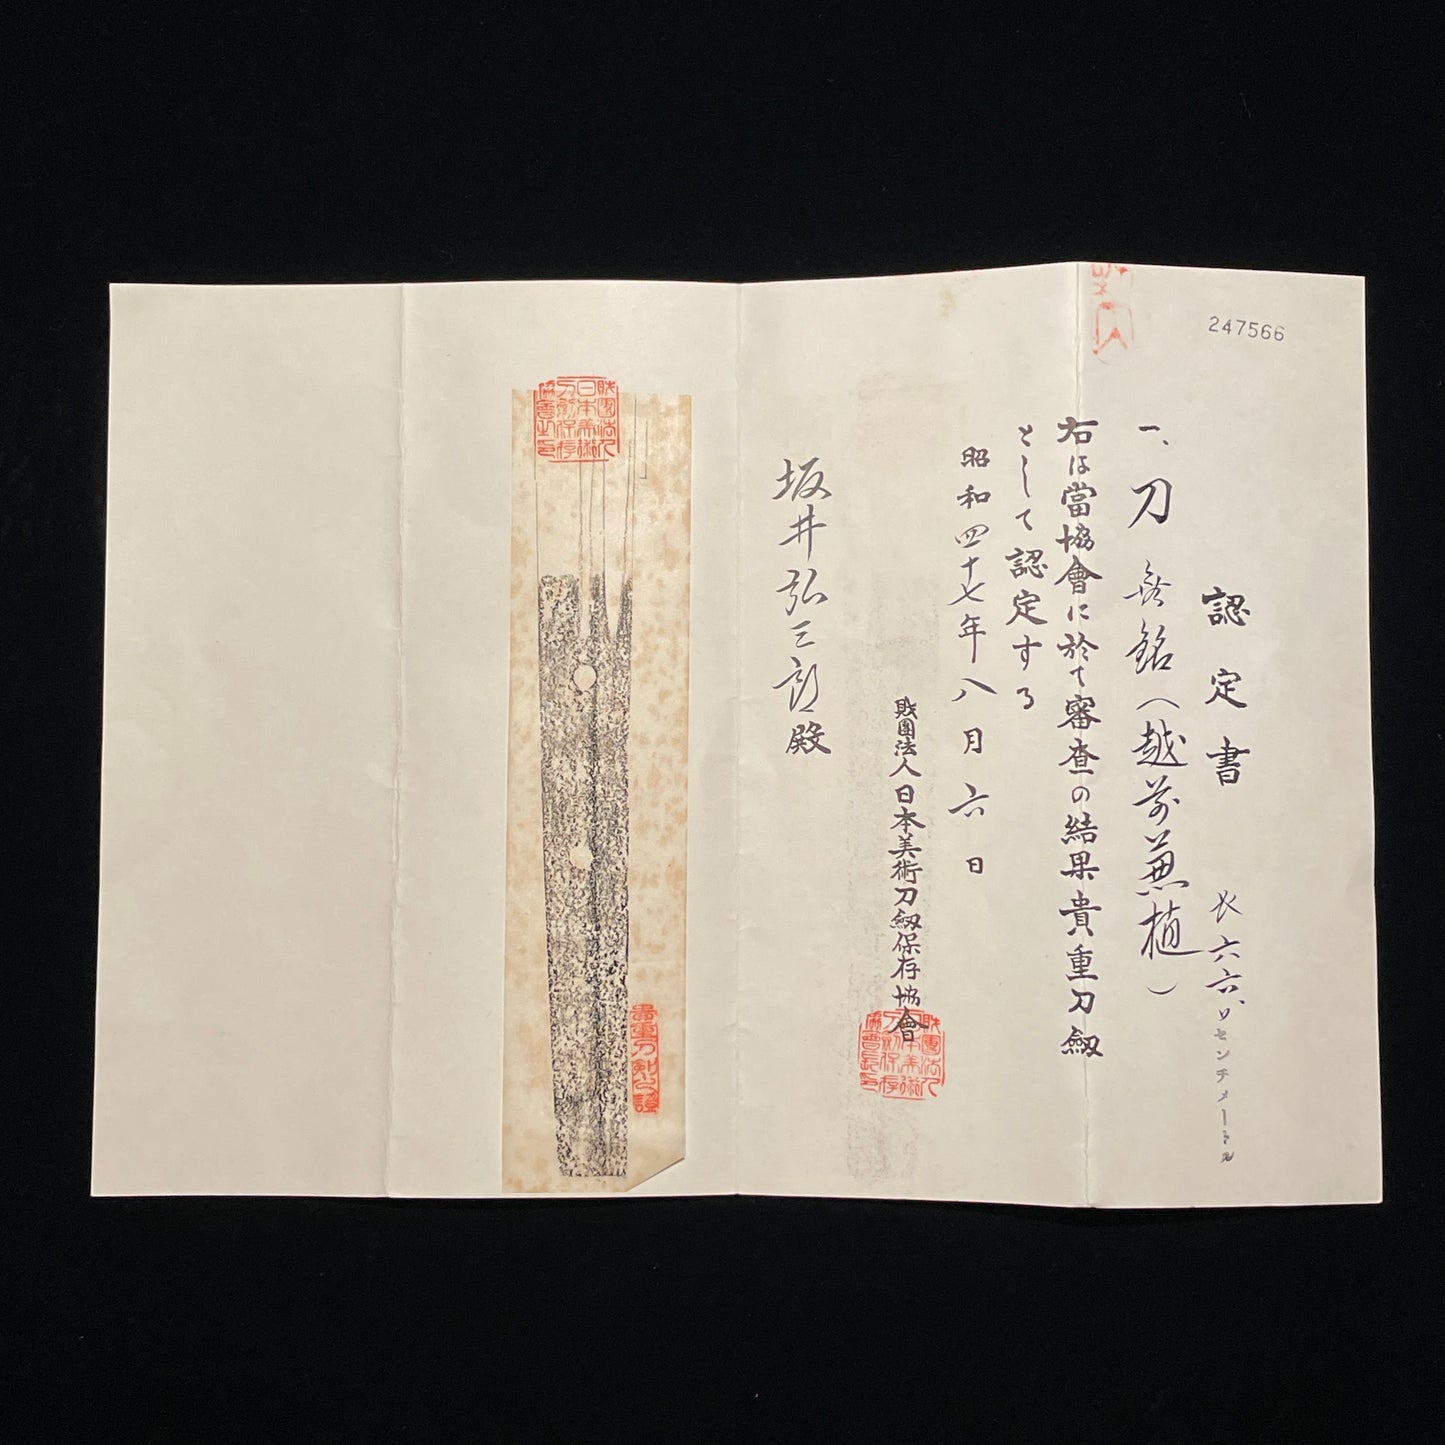 247566
認定書
一、刀 無銘（越前兼植）
長六六、ソセンチメートル
右は當協會に於て審査の結果貴重刀劔
として認定する
昭和四十七年八月六日
財團法人日本美術刀劔保存協會
財團法人日本美術刀劍保存協會長印
坂井弘三郎殿
財團法人日本美術刀劍保存協會之印
貴重刀剣之證